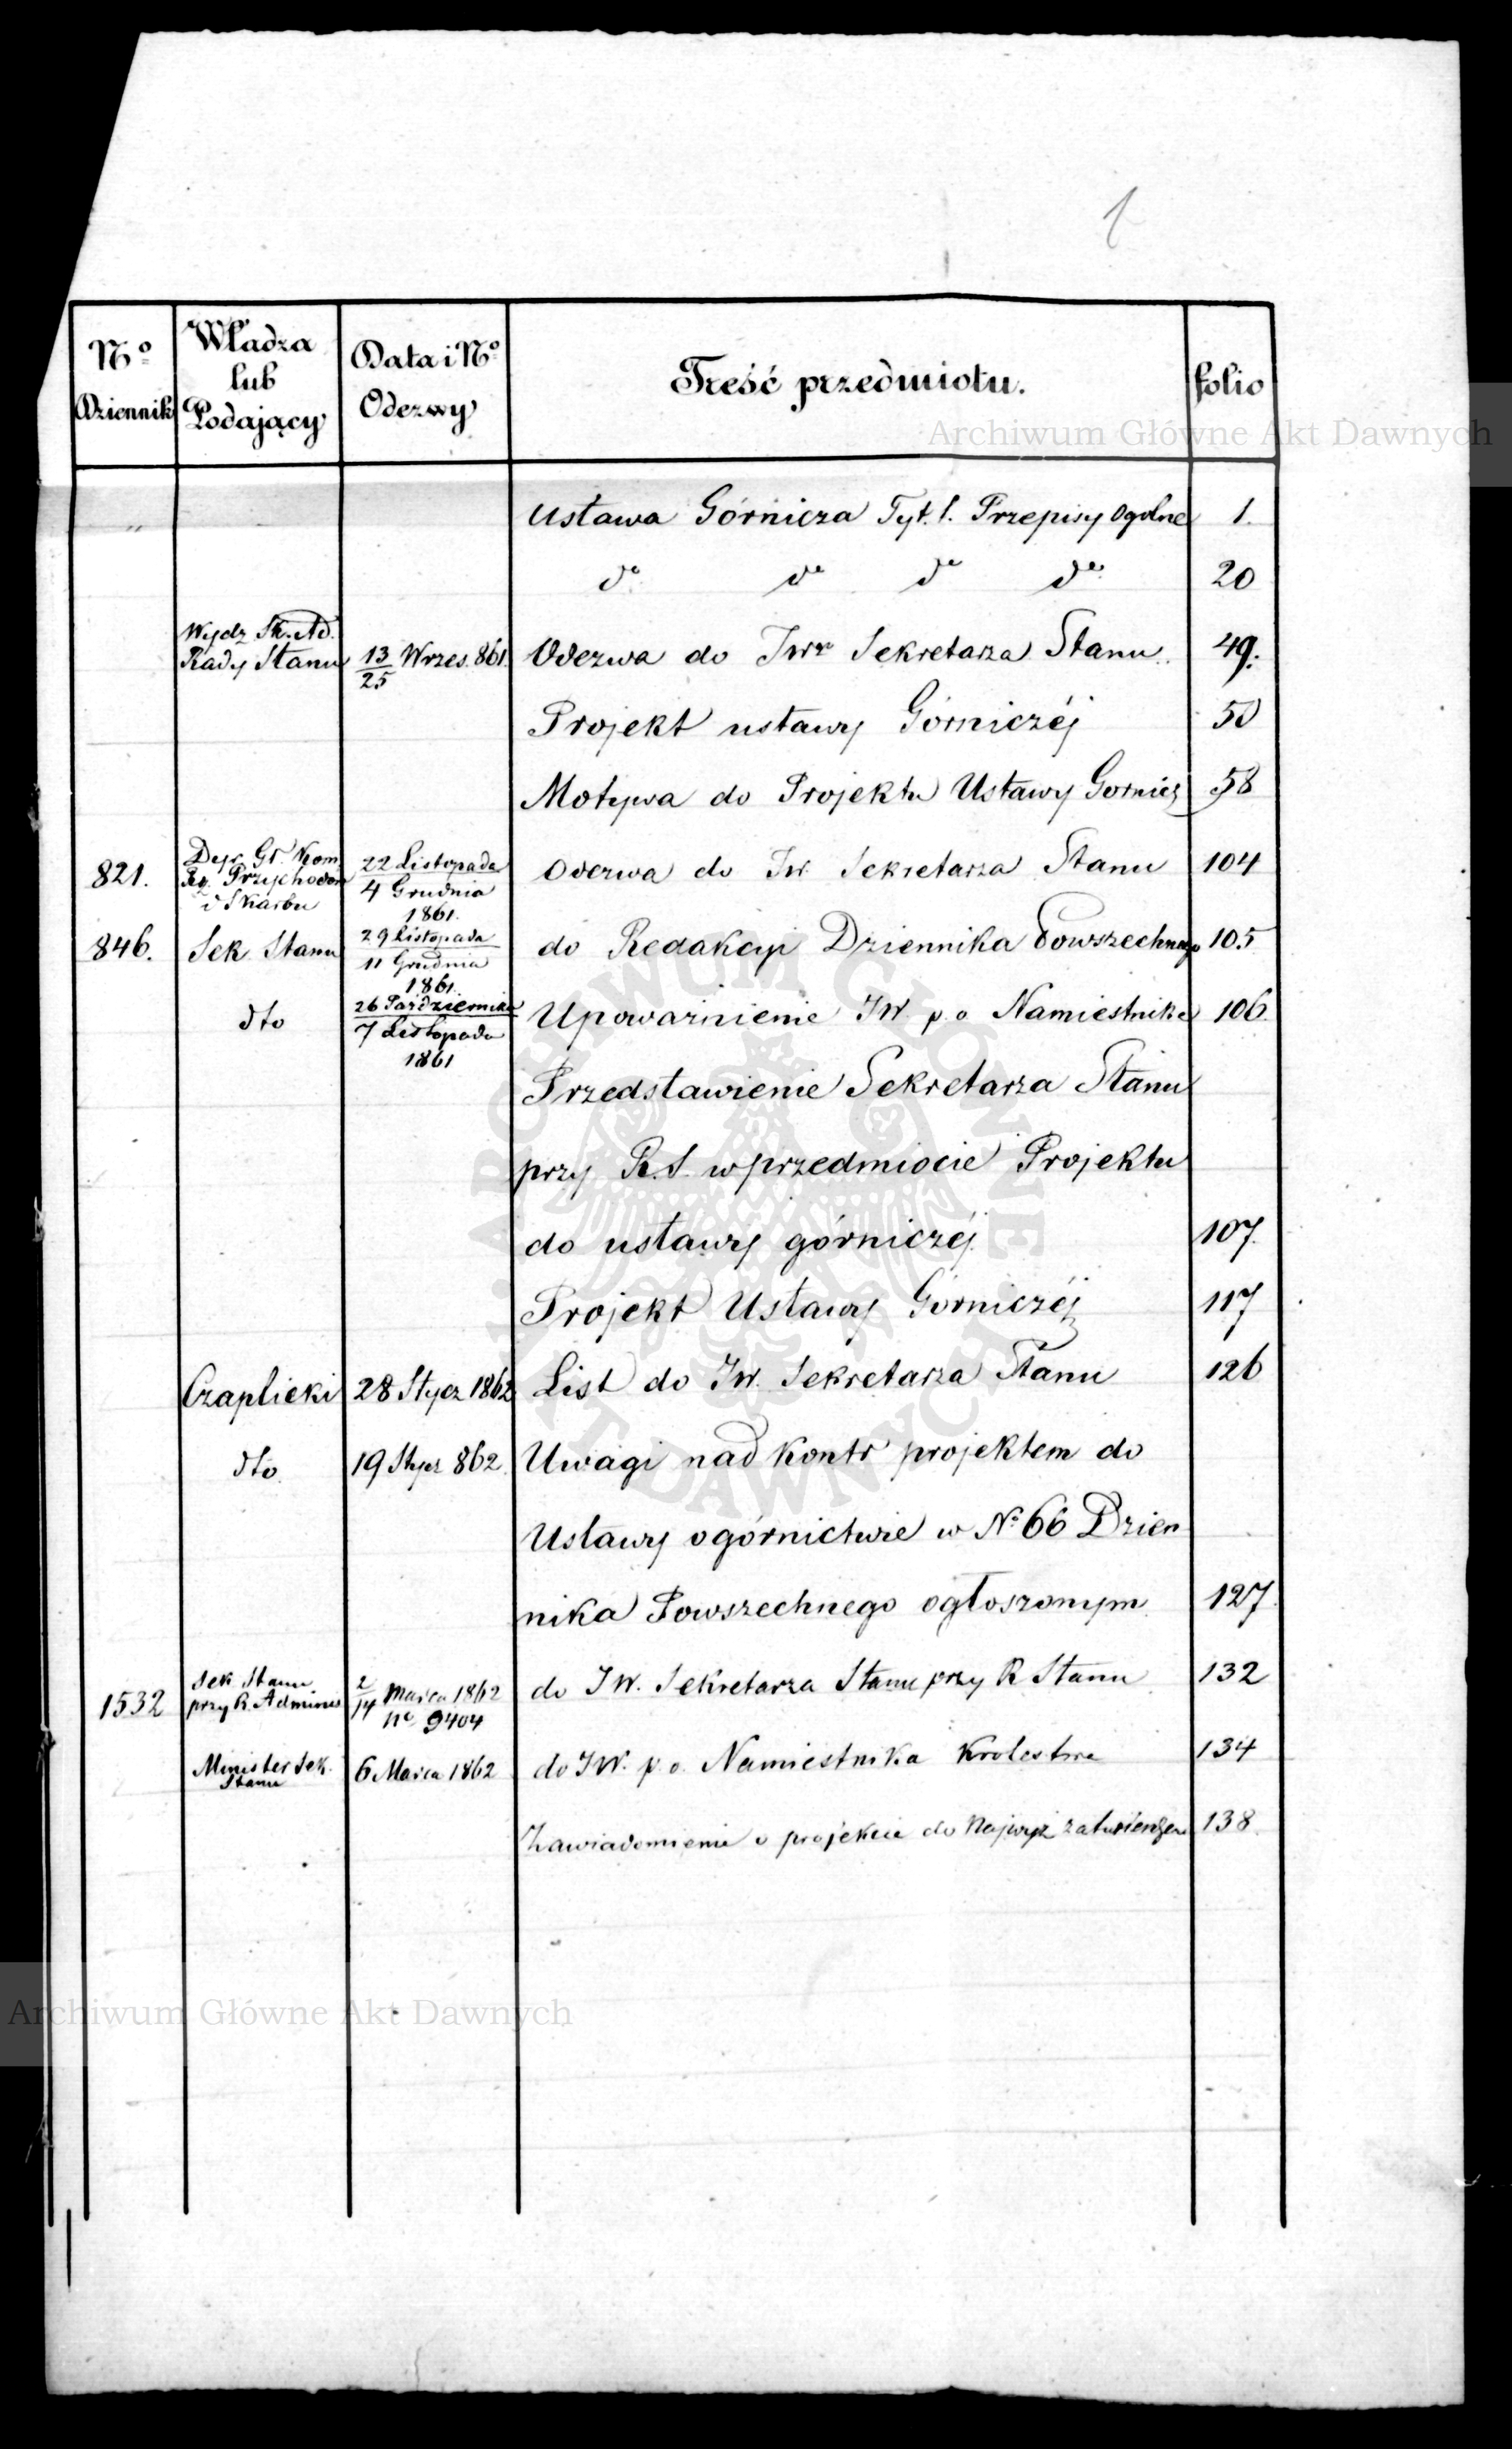 1
Nº Dziennik
Władza lub Podający
Data i Nº Odezwy
Treść przedmiotu.
folio
Archiwum Główne Akt Dawnych
Ustawa Górnicza Tyt. 1. Przepisy Ogolne 1.
dº dº dº dº 20
Wydz. Sk. Ad.
Rady Stanu 13/25 Wrzes. 861. Odezwa do JWº Sekretarza Stanu. 49.
Projekt ustawy Górniczéj 50
Motywa do Projektu Ustawy Gornicz 58
821. Dyr. Gł. Kom. Rz. Przychodów i Skarbu 22 Listopada / 4 Grudnia 1861. Odezwa do JW. Sekretarza Stanu 104
846. Sek. Stanu 29 Listopada / 11 Grudnia 1861. do Redakcyi Dziennika Powszechnego 105
dto 26 Października / 7 Listopada 1861 Upoważnienie JW. p.o Namiestnika 106.
Przedstawienie Sekretarza Stanu
przy R.S. w przedmiocie Projektu
do ustawy górniczéj 107.
Projekt Ustawy Górniczéj 117
Czaplicki 28 Stycz 1862 List do JW. Sekretarza Stanu 126
dto. 19 Stycz 862. Uwagi nad Kontr projektem do
Ustawy o górnictwie w Nº 66 Dzien
nika Powszechnego ogłoszonym. 127.
1532 Sek. Stanu przy R. Adminis 2/14 Marca 1862 nº 9404 do JW. Sekretarza Stanu przy R Stanu 132
Minister Sek. Stanu 6 Marca 1862 do JW. p.o. Namiestnika Krolestwa 134
Zawiadomienie o projekcie do Najwyż zatwierdzen 138.
Archiwum Główne Akt Dawnych
ARCHIWUM GŁÓWNE AKT DAWNYCH